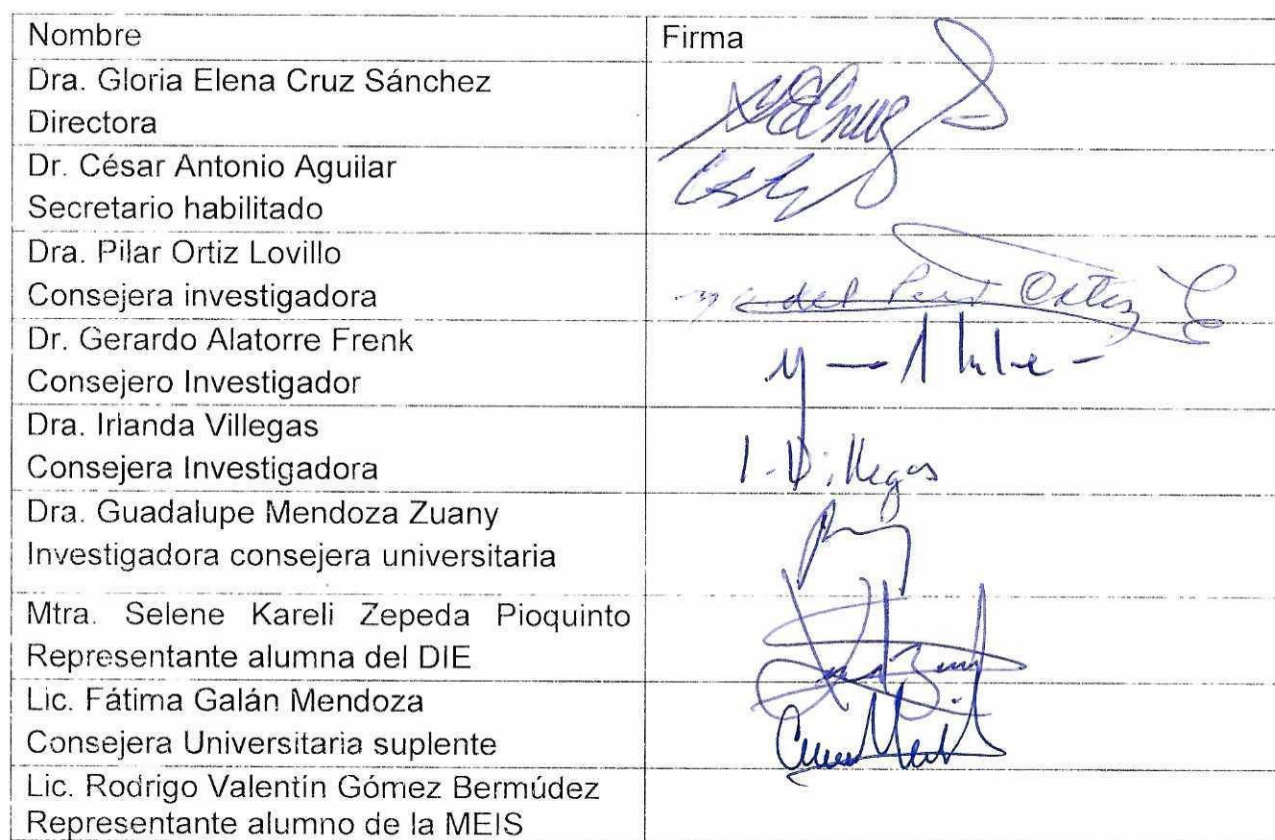 Nombre
Firma
Dra. Gloria Elena Cruz Sánchez
Directora
Dr. César Antonio Aguilar
Secretario habilitado
Dra. Pilar Ortiz Lovillo
Consejera investigadora
Ortiz L
Dr. Gerardo Alatorre Frenk
Consejero Investigador
Dra. Irlanda Villegas
Consejera Investigadora
I. Villegas
Dra. Guadalupe Mendoza Zuany
Investigadora consejera universitaria
Mtra. Selene Kareli Zepeda Pioquinto
Representante alumna del DIE
Lic. Fátima Galán Mendoza
Consejera Universitaria suplente
Lic. Rodrigo Valentín Gómez Bermúdez
Representante alumno de la MEIS